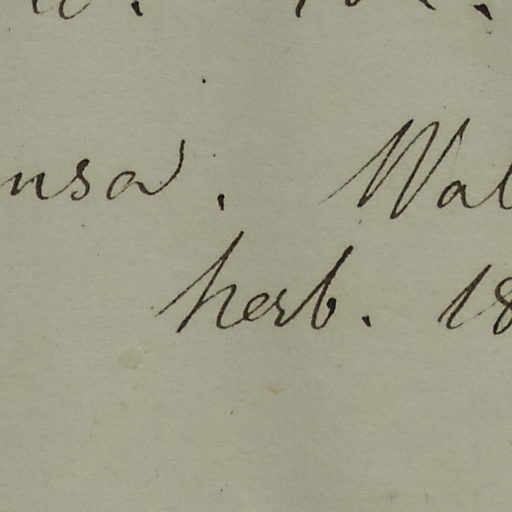 nsa. Wal
herb. 18